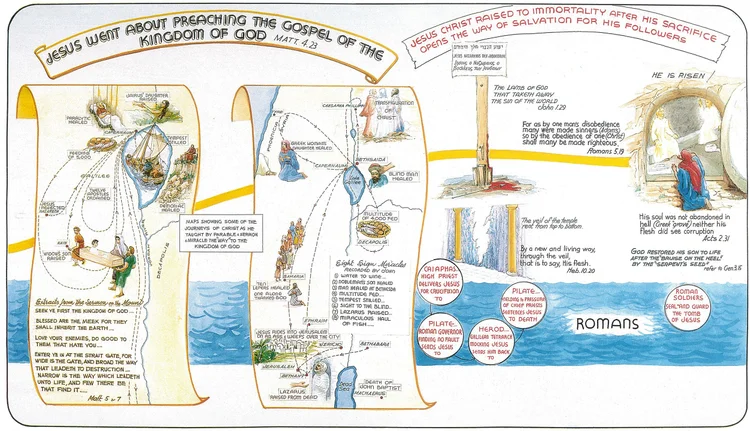 JESUS WENT ABOUT PREACHING THE GOSPEL OF THE
KINGDOM OF GOD MATT. 4.23
JESUS CHRIST RAISED TO IMMORTALITY AFTER HIS SACRIFICE
OPENS THE WAY OF SALVATION FOR HIS FOLLOWERS
JAIRUS' DAUGHTER
RAISED
PARALYTIC
HEALED
TEMPEST
STILLED
FEEDING
OF 5,000
GALILEE
TWELVE
APOSTLES
ORDAINED
DEMONIAC
HEALED
JESUS
REJECTED
NAZARETH
NAIN
WIDOWS SON
RAISED
DECAPOLIS
Extracts from the Sermon on the Mount
SEEK YE FIRST THE KINGDOM OF GOD
BLESSED ARE THE MEEK FOR THEY
SHALL INHERIT THE EARTH....
LOVE YOUR ENEMIES, DO GOOD TO
THEM THAT HATE YOU....
ENTER YE IN AT THE STRAIT GATE, FOR
WIDE IS THE GATE, AND BROAD THE WAY
THAT LEADETH TO DESTRUCTION...
NARROW IS THE WAY WHICH LEADETH
UNTO LIFE, AND FEW THERE BE
THAT FIND IT....
Matt 5 & 7
MAPS SHOWING SOME OF THE
JOURNEYS OF CHRIST AS HE
TAUGHT BY PARABLE & SERMON
& MIRACLE THE 'WAY' TO THE
KINGDOM OF GOD
CAESAREA PHILIPPI
TRANSFIGURATION
OF
CHRIST
SYRIA
GREEK WOMANS
DAUGHTER HEALED
CAPERNAUM
BETHSAIDA
BLIND MAN
HEALED
MULTITUDE
OF 4,000 FED
DECAPOLIS
SAMARIA
TEN
LEPERS HEALED
ONE ALONE
THANKED GOD
Eight Sign Miracles
RECORDED BY JOHN
1 WATER TO WINE...
2 NOBLEMANS SON HEALED
3 MAN HEALED AT BETHESDA
4 MULTITUDE FED...
5 TEMPEST STILLED...
6 SIGHT TO THE BLIND...
7 LAZARUS RAISED...
8 MIRACULOUS HAUL
OF FISH....
EPHRAIM
JESUS RIDES INTO JERUSALEM
ON AN ASS & WEEPS OVER THE CITY
JERICHO
BETHABARA
JERUSALEM
BETHANY
LAZARUS
RAISED FROM DEAD
Dead
Sea
DEATH OF
JOHN BAPTIST
MACHAERUS
The LAMB OF GOD
THAT TAKETH AWAY
THE SIN OF THE WORLD
John 1.29
For as by one mans disobedience
many were made sinners (Adam)
so by the obedience of one (Christ)
shall many be made righteous.
Romans 5.19
HE IS RISEN!
The veil of the temple
rent from top to bottom.
By a new and living way,
through the veil,
that is to say, His flesh.
Heb. 10.20
His soul was not abandoned in
hell (Greek 'grave') neither his
flesh did see corruption
Acts 2.31
GOD RESTORED HIS SON TO LIFE
AFTER THE 'BRUISE ON THE HEEL'
BY THE "SERPENT'S SEED"
refer to Gen 3.15
CAIAPHAS:
HIGH PRIEST
DELIVERS JESUS
FOR CRUCIFIXION
TO
PILATE:.
ROMAN GOVERNOR
FINDING NO FAULT
SENDS JESUS
TO
HEROD:..
GALILEAN TETRARCH
MOCKING JESUS
SENDS HIM BACK
TO
PILATE:..
YIELDING to PRESSURE
OF CHIEF PRIESTS
SENTENCES JESUS
TO DEATH
ROMANS
ROMAN
SOLDIERS
SEAL AND GUARD
THE TOMB
OF JESUS